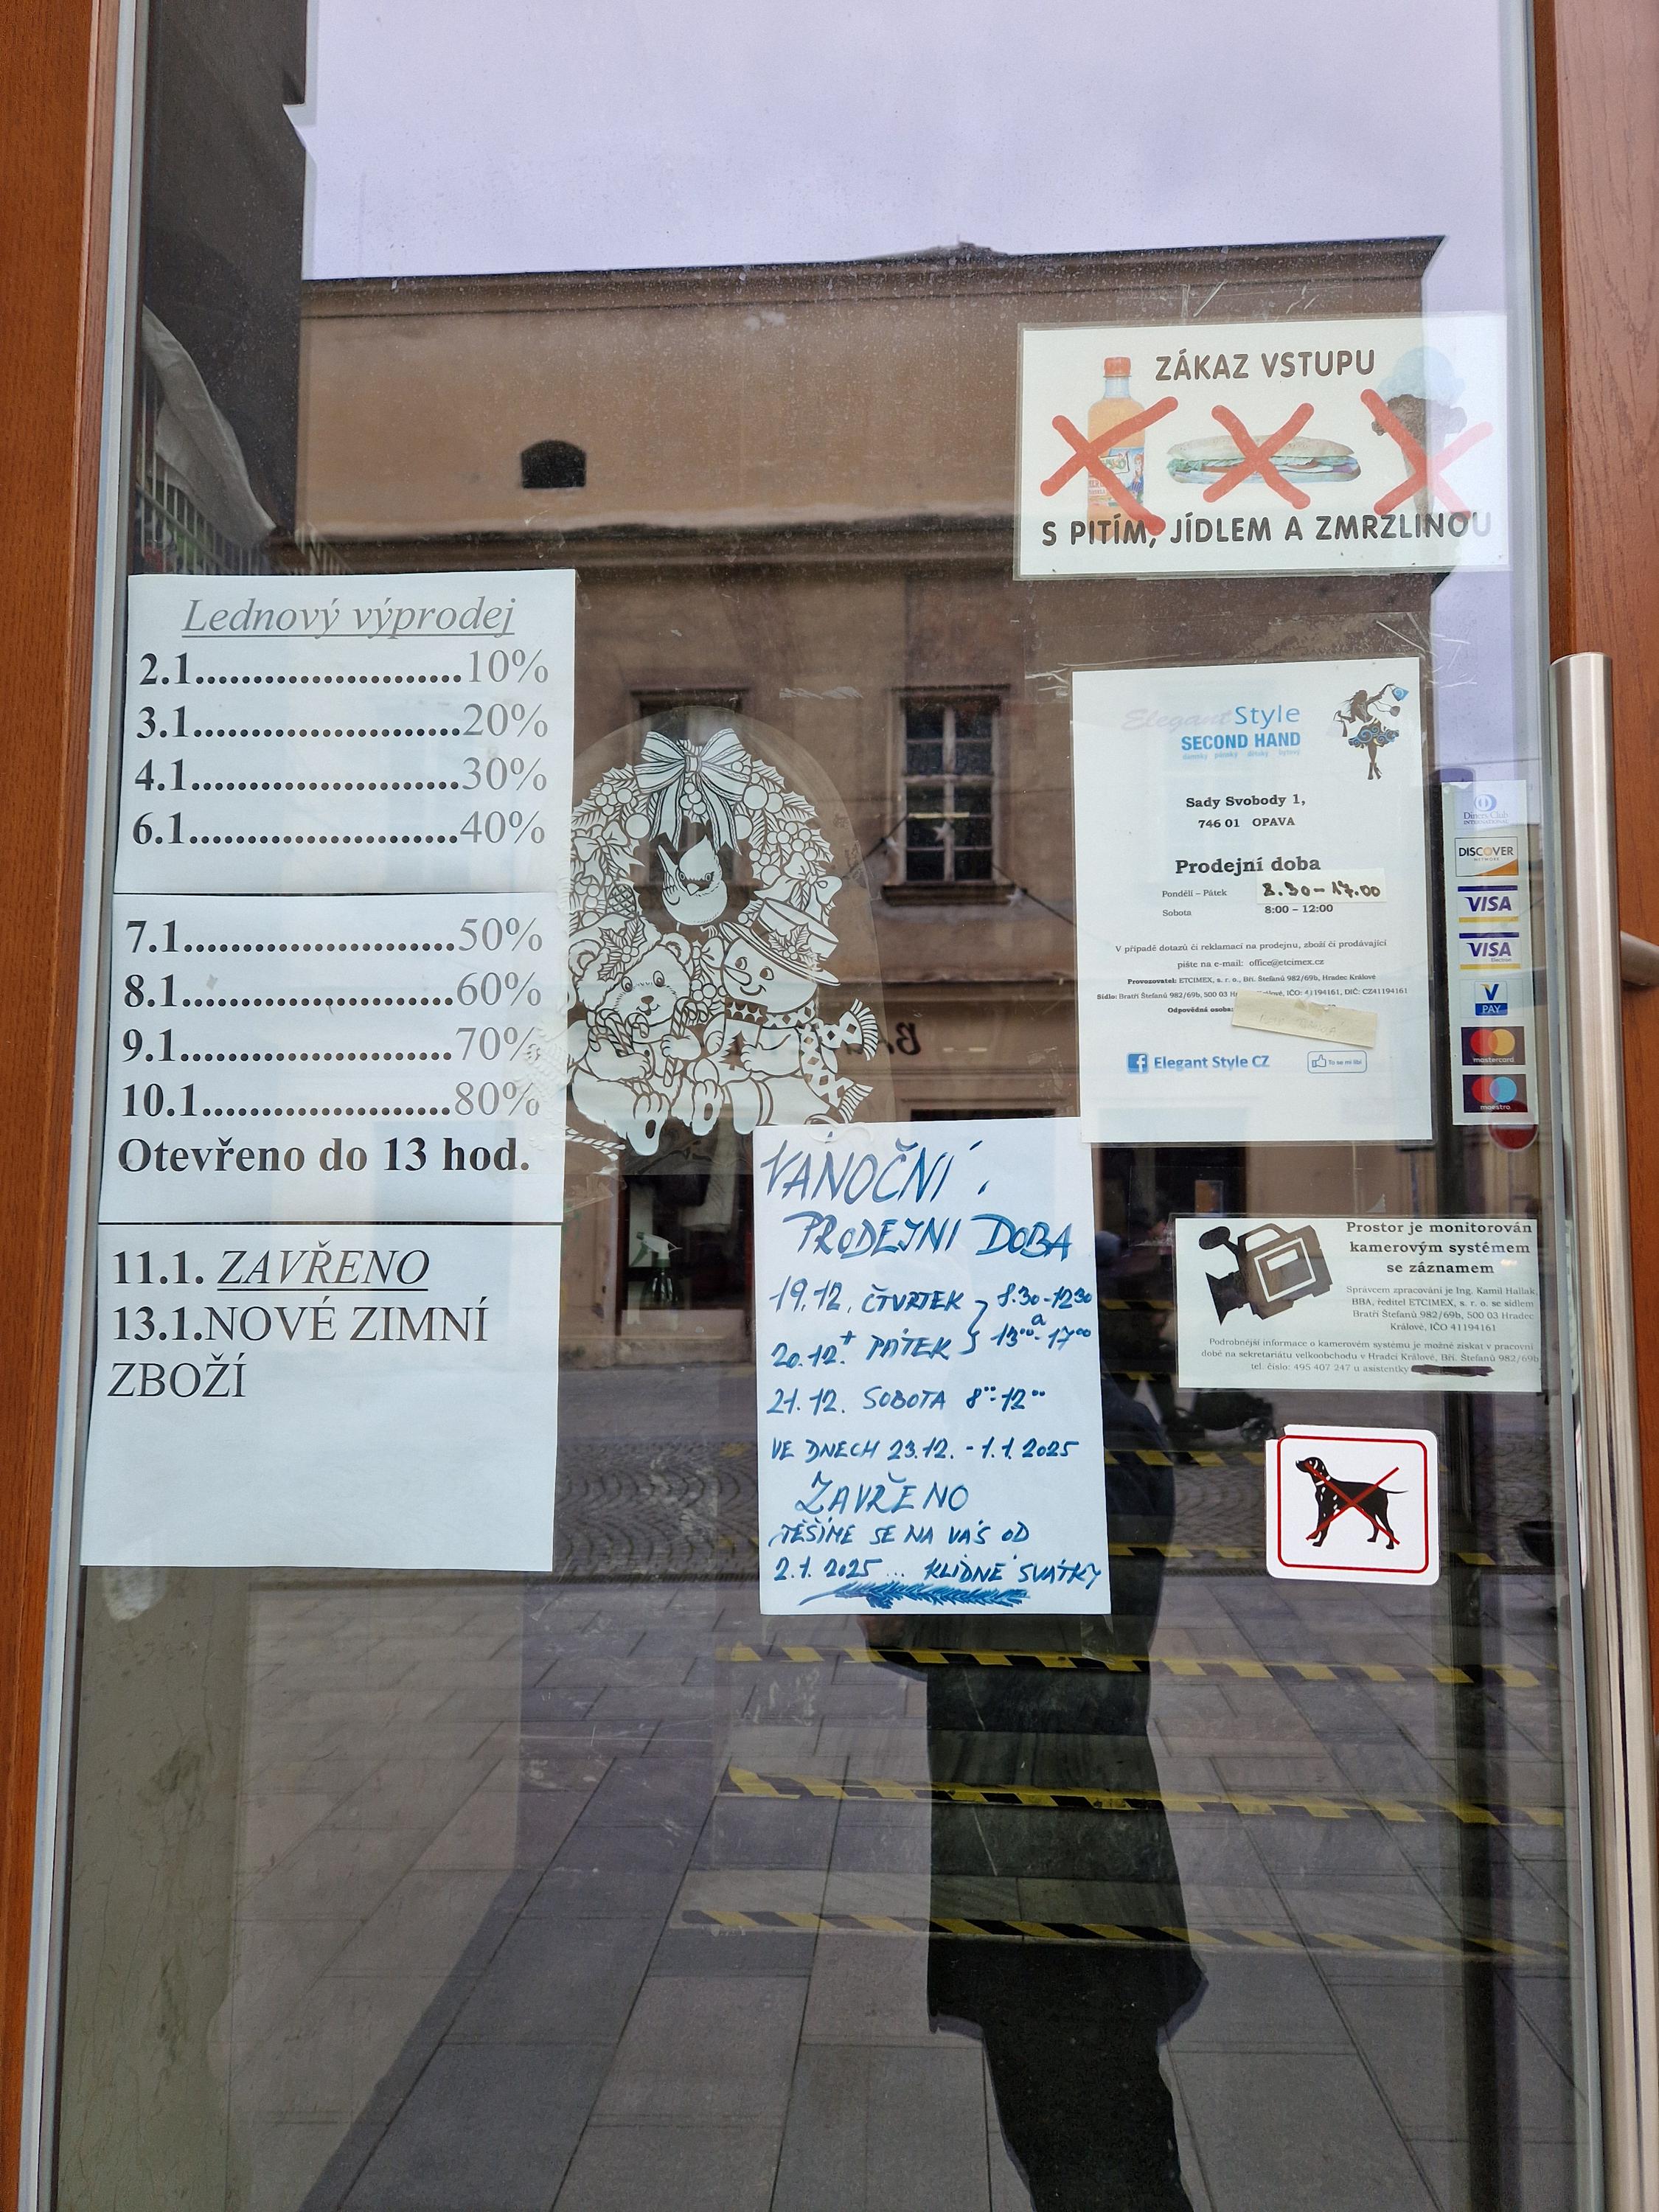 ZÁKAZ VSTUPU
S PITÍM, JÍDLEM A ZMRZLINOU
Lednový výprodej
2.1.......................10%
3.1.......................20%
4.1.......................30%
6.1.......................40%
7.1.......................50%
8.1.......................60%
9.1.......................70%
10.1.....................80%
Otevřeno do 13 hod.
11.1. ZAVŘENO
13.1.NOVÉ ZIMNÍ
ZBOŽÍ
Elegant Style
SECOND HAND
dámský pánský dětský bytový
Sady Svobody 1,
746 01 OPAVA
Prodejní doba
Pondělí – Pátek 8.30-17.00
Sobota 8:00 – 12:00
V případě dotazů či reklamací na prodejnu, zboží či prodávající
pište na e-mail: office@etcimex.cz
Provozovatel: ETCIMEX, s. r. o., Bří. Štefanů 982/69b, Hradec Králové
Sídlo: Bratří Štefanů 982/69b, 500 03 IČO: 41194161, DIČ: CZ41194161
Odpovědná osoba:
Elegant Style CZ
To se mi líbí
Diners Club
INTERNATIONAL
DISCOVER
NETWORK
VISA
VISA
Electron
V
PAY
mastercard
maestro
VÁNOČNÍ
PRODEJNÍ DOBA
19.12. ČTVRTEK 8.30-12.30
+ a
20.12. PÁTEK 13⁰⁰-17⁰⁰
21.12. SOBOTA 8⁰⁰-12⁰⁰
VE DNECH 23.12. - 1.1.2025
ZAVŘENO
TĚŠÍME SE NA VÁS OD
2.1.2025 ... KLIDNÉ SVÁTKY
Prostor je monitorován
kamerovým systémem
se záznamem
Správcem zpracování je Ing. Kamil Hallak,
BBA, ředitel ETCIMEX, s. r. o. se sídlem
Bratří Štefanů 982/69b, 500 03 Hradec
Králové, IČO 41194161
Podrobnější informace o kamerovém systému je možné získat v pracovní
době na sekretariátu velkoobchodu v Hradci Králové, Bří. Štefanů 982/69b
tel. číslo: 495 407 247 u asistentky